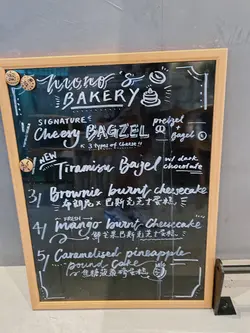 momo's
BAKERY
SIGNATURE
1/ Cheesy BAGZEL pretzel + Bagel
* 3 types of cheese!!
2/ NEW Tiramisu Bagel w/ dark chocolate
3/ Brownie burnt cheesecake
布朗尼巴斯克芝士蛋糕
FRESH
4/ Mango burnt cheesecake
鮮芒果巴斯克芝士蛋糕
5/ Caramelised pineapple
pound cake
焦糖菠蘿磅蛋糕